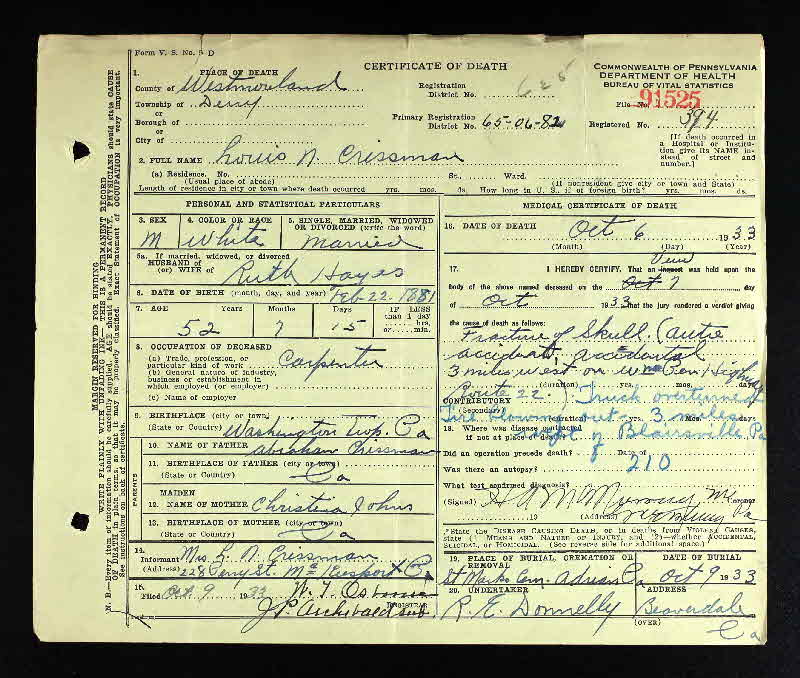 Form V. S. No. 5 D
CERTIFICATE OF DEATH
COMMONWEALTH OF PENNSYLVANIA
DEPARTMENT OF HEALTH
BUREAU OF VITAL STATISTICS
1. PLACE OF DEATH
County of Westmoreland
Township of Derry
or
Borough of
or
City of
Registration
District No. 625
Primary Registration
District No. 65-06-82
File No. 91525
Registered No. 394
[If death occurred in
a Hospital or Institu-
tion give its NAME in-
stead of street and
number.]
2. FULL NAME Louis N. Crissman
(a) Residence. No. St., Ward.
(Usual place of abode) (If nonresident give city or town and State)
Length of residence in city or town where death occurred yrs. mos. ds. How long in U. S., if of foreign birth? yrs. mos. ds.
PERSONAL AND STATISTICAL PARTICULARS
3. SEX M
4. COLOR OR RACE White
5. SINGLE, MARRIED, WIDOWED
OR DIVORCED (write the word)
Married
5a. If married, widowed, or divorced
HUSBAND of
(or) WIFE of Ruth Hayes
6. DATE OF BIRTH (month, day, and year) Feb 22. 1881
7. AGE Years Months Days IF LESS
than 1 day
hrs.
or min.
52 7 15
8. OCCUPATION OF DECEASED
(a) Trade, profession, or
particular kind of work Carpenter
(b) General nature of industry,
business or establishment in
which employed (or employer)
(c) Name of employer
9. BIRTHPLACE (city or town)
(State or Country) Washington Twp. Pa
PARENTS
10. NAME OF FATHER Abraham Crissman
11. BIRTHPLACE OF FATHER (city or town)
(State or Country) Pa
MAIDEN
12. NAME OF MOTHER Christina Johns
13. BIRTHPLACE OF MOTHER (city or town)
(State or Country) Pa
14. Informant Mrs L. N. Crissman
(Address) 228 Perry St. McKeesport Pa
15. Filed Oct. 9 1933 W. T. Osborne
REGISTRAR
J. P. Archibald sub.
MEDICAL CERTIFICATE OF DEATH
16. DATE OF DEATH Oct 6 1933
(Month) (Day) (Year)
17. View
I HEREBY CERTIFY, That an inquest was held upon the
body of the above named deceased on the Oct 7 day
of Oct 1933 that the jury rendered a verdict giving
the cause of death as follows:
Fracture of Skull. (auto
accident) accidental
3 miles west on Wm Penn Highway
Route 22. (duration) yrs. mos. days
CONTRIBUTORY Truck overturned
(Secondary) Tire blowing out - 3 miles
(duration) yrs. mos. days
18. Where was disease contracted
if not at place of death? of Blairsville Pa
Did an operation precede death? Date of
Was there an autopsy? 210
What test confirmed diagnosis?
(Signed) H. A. McMurray M. Coroner
, 19 (Address) Pa
*State the DISEASE CAUSING DEATH, or in deaths from VIOLENT CAUSES,
state (1) MEANS AND NATURE OF INJURY, and (2) whether ACCIDENTAL,
SUICIDAL, or HOMICIDAL. (See reverse side for additional space.)
19. PLACE OF BURIAL, CREMATION OR
REMOVAL
St Marks Cem. Adrian Pa
DATE OF BURIAL
Oct 9 1933
20. UNDERTAKER
R. E. Donnelly
ADDRESS
Beaverdale
(OVER)
Pa
MARGIN RESERVED FOR BINDING
WRITE PLAINLY WITH UNFADING INK—THIS IS A PERMANENT RECORD
N. B.—Every item of information should be carefully supplied. AGE should be stated EXACTLY. PHYSICIANS should state CAUSE
OF DEATH in plain terms, so that it may be properly classified. Exact Statement of OCCUPATION is very important.
See instructions on back of certificate.